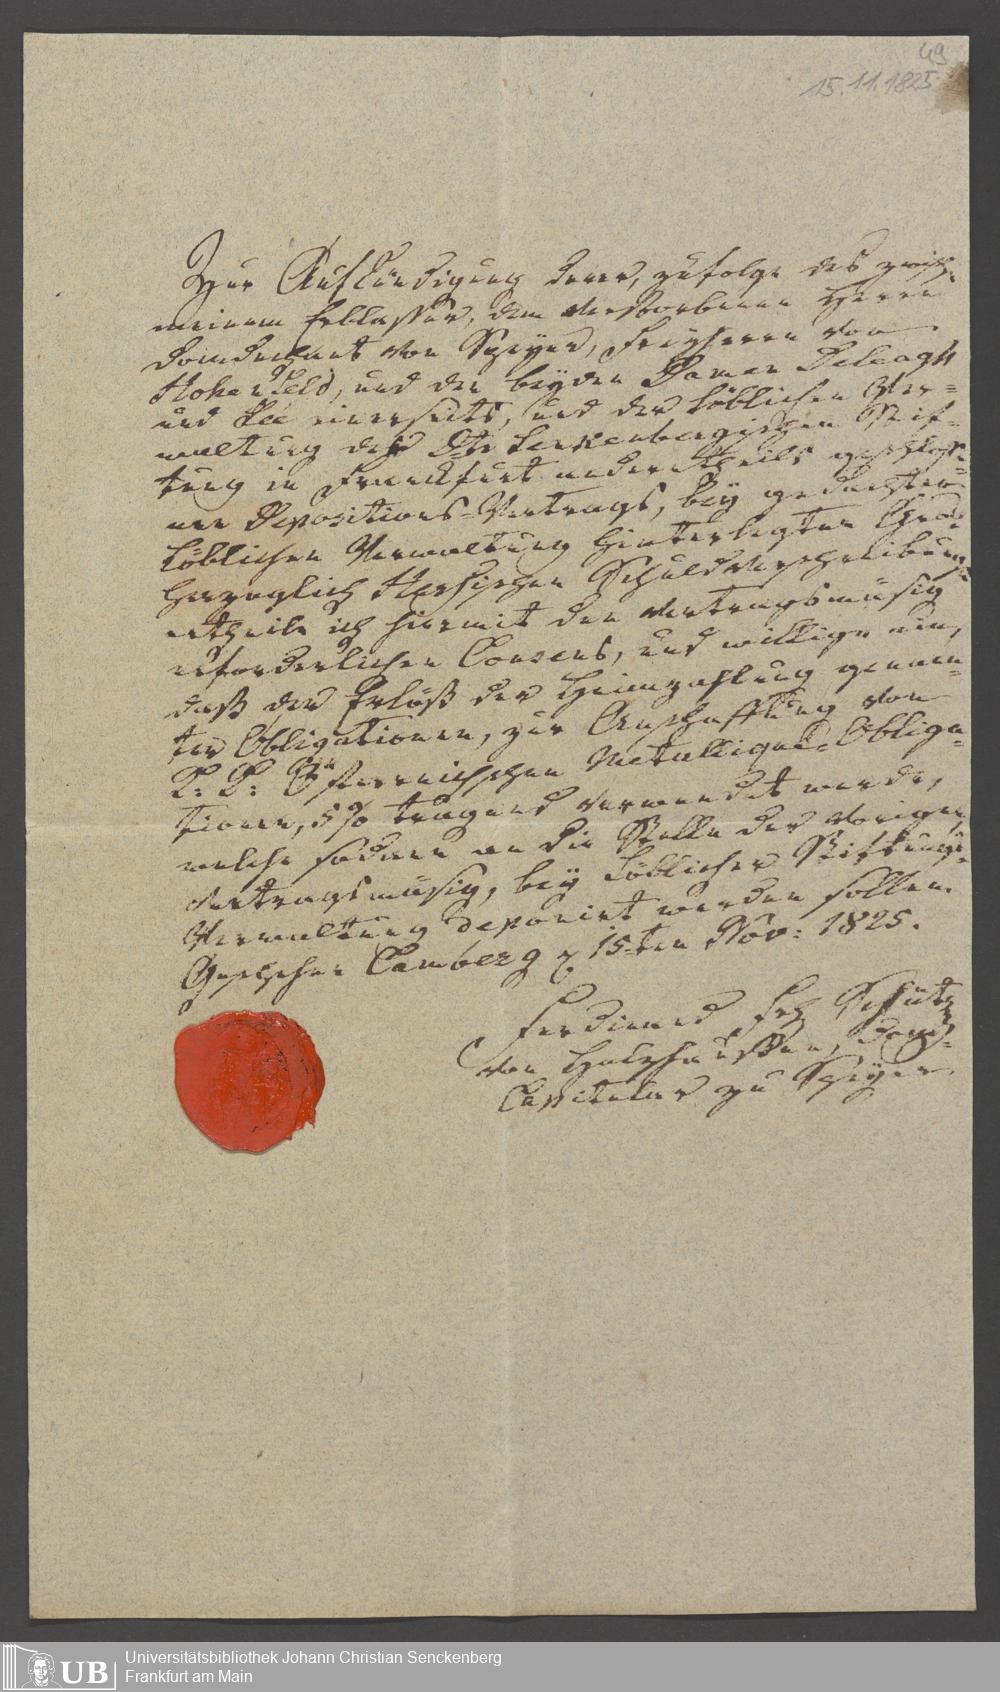 49
15.11.1825
Zur Aufkündigung derer, zufolge des zwisch-
meinem Erblasser, dem verstorbenen Herrn
Domdechant von Speyer, Freyherrn von
Hohenfeld, und den beyden Damen
und einerseits, und der löblichen Ver-
waltung der Dr. Senkenbergischen Stif-
tung in Frankfurt anderentheils geschloße-
nen Depositions-Vertrags, bey gedachter
löblichen Verwaltung hinterlegten Groß-
herzoglich Hessischen Schuldverschreibung
ertheile ich hiermit den vertragsmäsig
erforderlichen Consens, und willige ein,
daß der Erlöß der Heimzahlung genann-
ter Obligationen, zur Anschaffung von
K: K: Österreichischen Metallique-Obliga-
tionen, 5% tragend verwendet werde,
welche sodann an die Stelle der vorigen
vertragsmäsig, bey löblicher Stiftungs-
Verwaltung deponirt werden sollen.
Geschehen Camberg 15-ten Nov: 1825.
Ferdinand Frh Schütz
von Holzhaussen, Dom-
Capitular zu Speyer
UB
Universitätsbibliothek Johann Christian Senckenberg
Frankfurt am Main